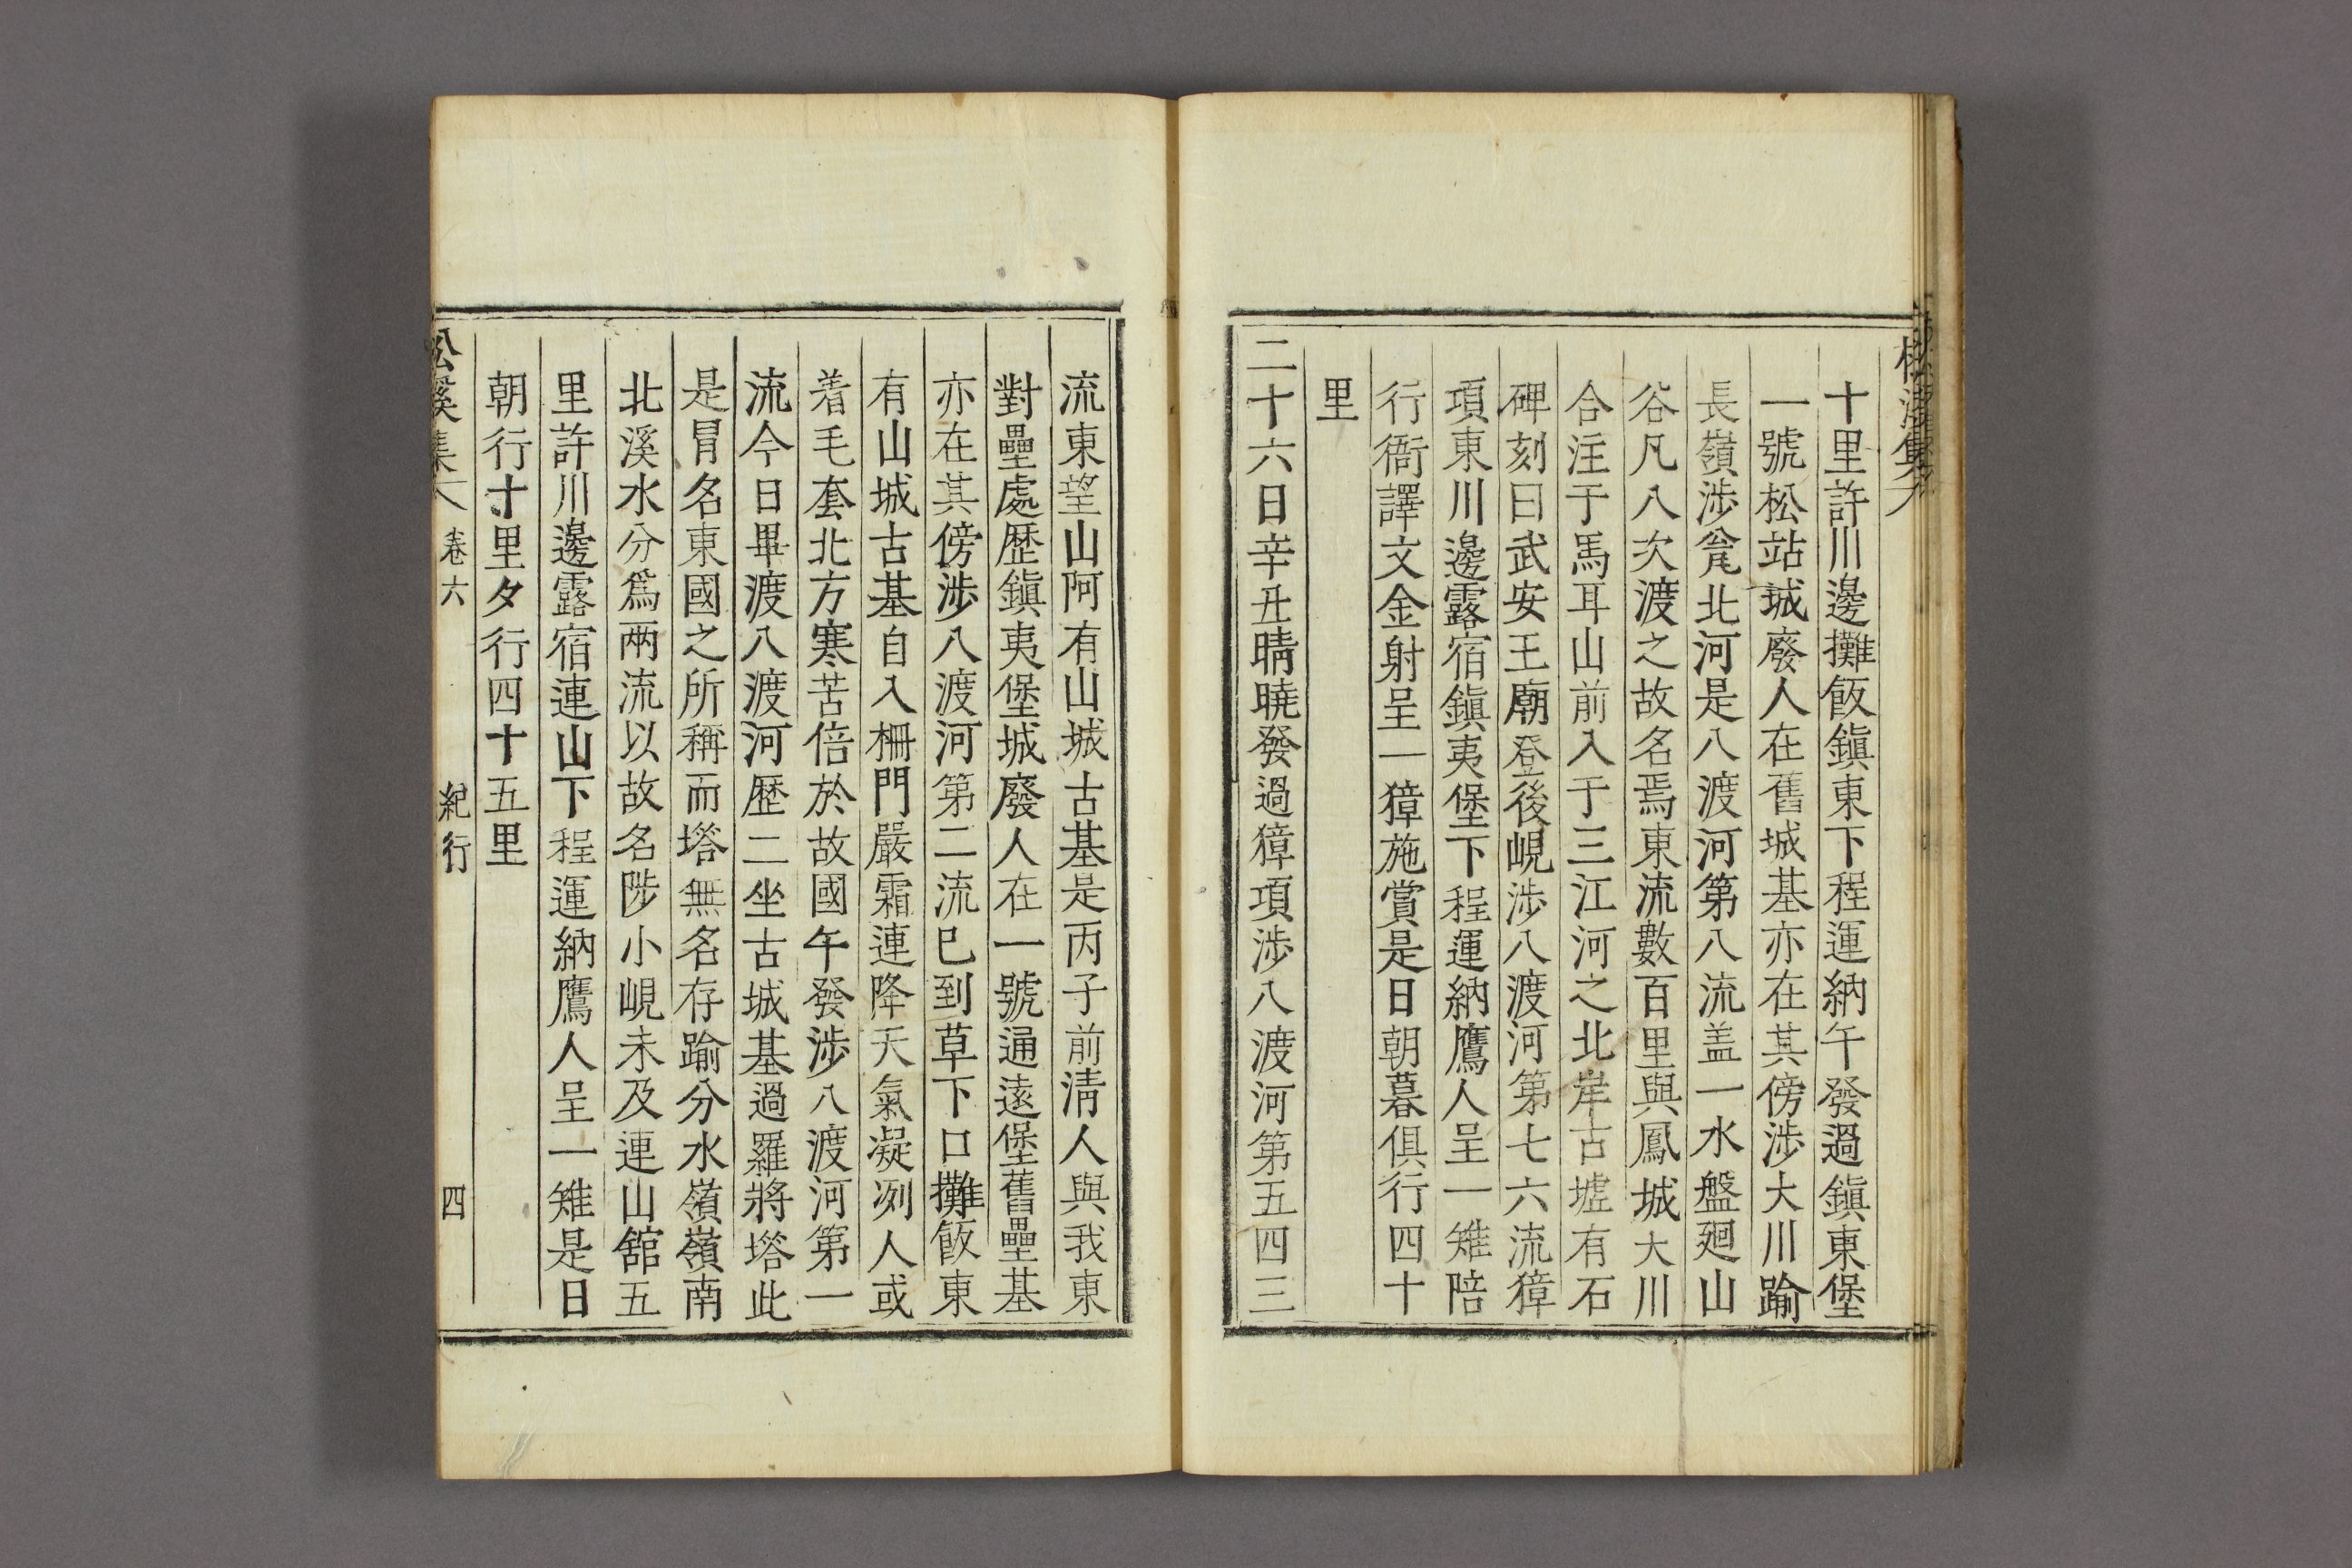 十里許川邊攤飯鎭東下程運納午發過鎭東堡
一號松站城廢人在舊城基亦在其傍涉大川踰
長嶺涉瓮北河是八渡河第八流盖一水盤廻山
谷凡八次渡之故名焉東流數百里與鳳城大川
合注于馬耳山前入于三江河之北岸古墟有石
碑刻曰武安王廟登後峴涉八渡河第七六流獐
項東川邊露宿鎭夷堡下程運納鷹人呈一雉陪
行衙譯文金射呈一獐施賞是日朝暮俱行四十
里
二十六日辛丑晴曉發過獐項涉八渡河第五四三
流東望山阿有山城古基是丙子前淸人與我東
對壘處歷鎭夷堡城廢人在一號通遠堡舊壘基
亦在其傍涉八渡河第二流已到草下口攤飯東
有山城古基自入柵門嚴霜連降天氣凝冽人或
着毛套北方寒苦倍於故國午發涉八渡河第一
流今日畢渡八渡河歷二坐古城基過羅將塔此
是冐名東國之所稱而塔無名存踰分水嶺嶺南
北溪水分爲兩流以故名陟小峴未及連山舘五
里許川邊露宿連山下程運納鷹人呈一雉是日
朝行十里夕行四十五里
松溪集 卷六 紀行 四